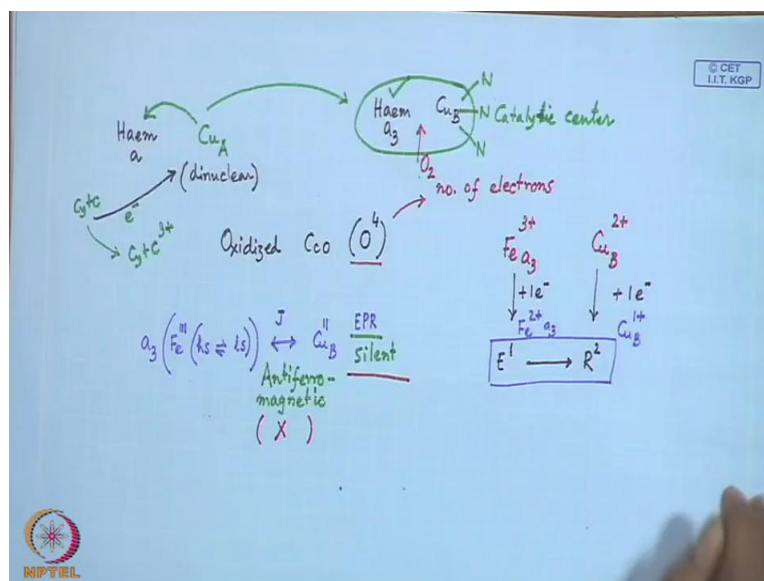 © CET
I.I.T. KGP
Haem a
CuA
(dinuclear)
Cyt C
e⁻
Cyt C³⁺
Haem a₃
CuB
N
N
N
Catalytic center
O₂
no. of electrons
Oxidized CcO (O⁴)
Fe³⁺a₃
Cu²⁺B
+1e⁻
+1e⁻
Fe²⁺a₃
Cu¹⁺B
E¹ ⟶ R²
a₃(Feᴵᴵᴵ(hs ⇌ ls)) J ⟷ CuᴵᴵB
EPR
Silent
Antiferro-
magnetic
( X )
NPTEL